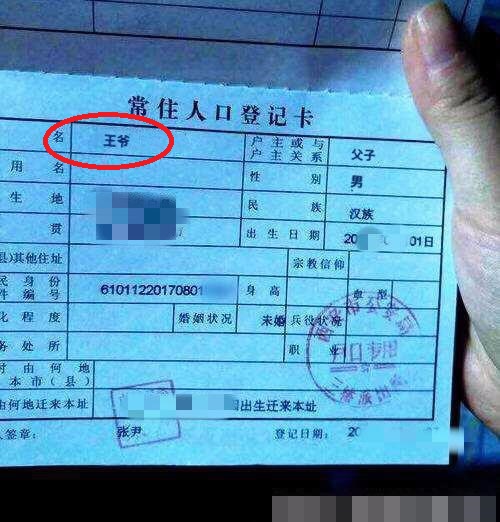 常住人口登记卡
名 王爷 户主或与户主关系 父子
用名 性别 男
生地 民族 汉族
贯 出生日期 20 01日
县)其他住址 宗教信仰
民身份件编号 61011220170801 身高 血型
化程度 婚姻状况 未婚 兵役状况
务处所 职业
时由何地本市(县)
由何地迁来本址 出生迁来本址
人签章: 张尹 登记日期: 20